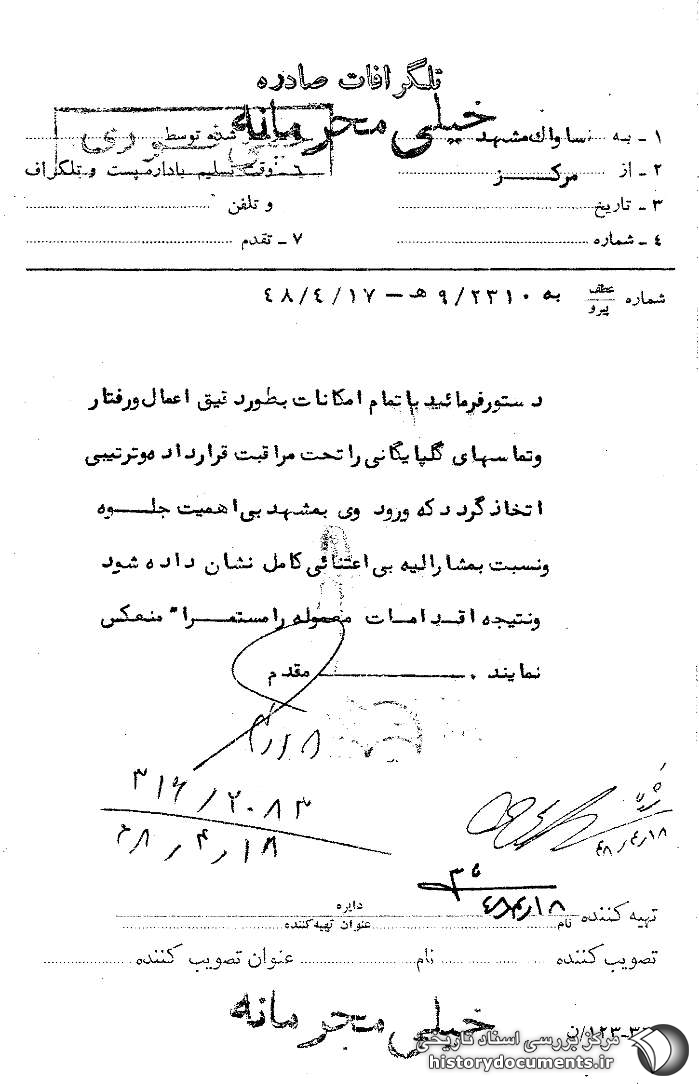 تلگرافات صادره
خیلی محرمانه
۱ - به ساواك مشهد
۲ - از مرکز
۳ - تاریخ
۴ - شماره
شده توسط
وقت تسلیم باداره پست و تلگراف
و تلفن
۷ - تقدم
شماره عطف پیرو به ۹/۲۳۱۰ ه - ۴۸/۴/۱۷
دستور فرمائید با تمام امکانات بطور دقیق اعمال و رفتار
و تماسهای گلپایگانی را تحت مراقبت قرار داده و ترتیبی
اتخاذ گردد که ورود وی بمشهد بی اهمیت جلوه
و نسبت بمشارالیه بی اعتنائی کامل نشان داده شود
و نتیجه اقدامات معموله را مستمراً منعکس
نمایند . مقدم
۳۱۶/۲۰۸۳
۴۸/۴/۱۸
۴۸/۴/۱۸
۴۸/۴/۱۸
تهیه کننده نام دایره عنوان تهیه کننده
تصویب کننده نام عنوان تصویب کننده
خیلی محرمانه
مرکز بررسی اسناد تاریخی
historydocuments.ir